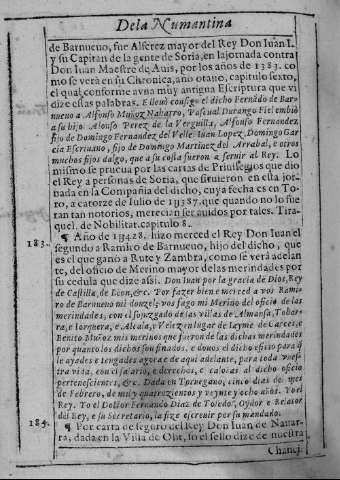 De la Numantina
de Barnueuo, fue Alferez mayor del Rey Don Iuan I.
y su Capitan de la gente de Soria, en la jornada contra
Don Iuan Maestre de Auis, por los años de 1383. co
mo se verà en su Chronica, año otauo, capitulo sexto,
el qual conforme a vna muy antigua Escriptura que vi
dize estas palabras. E lleuò consigo el dicho Fernādo de Bar-
nueuo a Alfonso Muñoz Naharro, Pascual Durango Fiel embiò
a su hijo Alonso Perez de la Verguilla, Alfonso Fernandez
fijo de Domingo Fernandez del Velle. Iuan Lopez, Domingo Gar
cia Escriuano, fijo de Domingo Martinez del Arrabal, e otros
muchos fijos dalgo, que a su costa fueron a seruir al Rey. Lo
mismo se prueua por las cartas de Priuilegios que dio
el Rey a personas de Soria, que siruieron en esta jor-
nada en la Compañia del dicho, cuya fecha es en To-
ro, a catorze de Iulio de 1387. que quando no lo fue
ran tan notorios, merecian ser auidos por tales. Tira-
quel. de Nobilitat. capitul. 8.
183. ¶ Año de 1428. hizo merced el Rey Don Iuan el
segundo a Ramiro de Barnueuo, hijo del dicho, que
es el que ganò a Rute y Zambra, como se verà adelan
te, del oficio de Merino mayor de las merindades por
su cedula que dize asi. Don Iuan por la gracia de Dios, Rey
de Castilla, de Leon, &c. Por fazer bien e merced a vos Rami-
ro de Barnueuo mi donzel, vos fago mi Merino del oficio de las
merindades, con el juzgado de las villas de Almansa, Tobar-
ra, e Iorquera, e Alcala, e Velez en lugar de Iayme de Carces, e
Benito Muñoz mis merinos que fueron de las dichas merindades
por quanto los dichos son finados. e douos el dicho oficio para q̄
le ayades e tengades agora e de aqui adelante, para toda vues-
tra vida, con el salario, e derechos, e calonas al dicho oficio
pertenescientes, &c. Dada en cinco dias de mes
de Febrero, de mil y quatrozientos y veynte y ocho años. Yo el
Rey. Yo el Doctor Fernando Diaz de Toledo, Oydor e Relator
del Rey, e su Secretario, la fize escreuir por su mandado.
184. ¶ Por carta de seguro del Rey Don Iuan de Nauar-
ra, dada en la Villa de Olit, so el sello dize de nuestra
Chancj